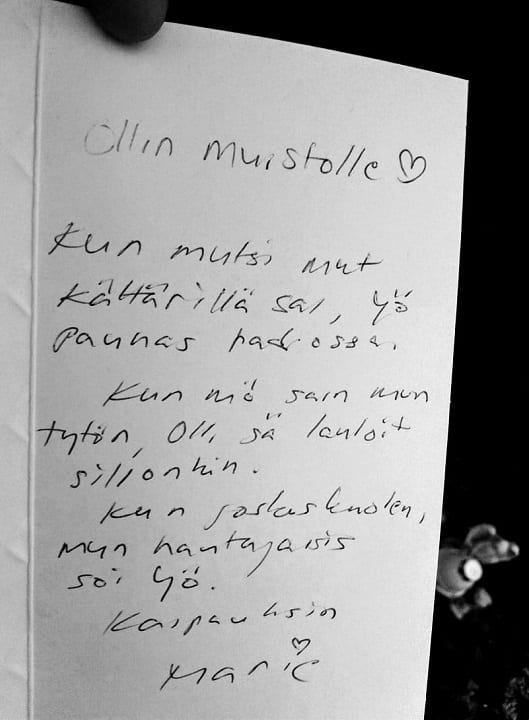 Ollin muistolle ♡
Kun mutsi mut
Kättärillä sai, Yö
paunas radiossa.
Kun mä sain mun
tytön, Olli sä lauloit
silloinkin.
Kun joskus kuolen,
mun hautajaisis
soi Yö.
Kaipauksin
Marie